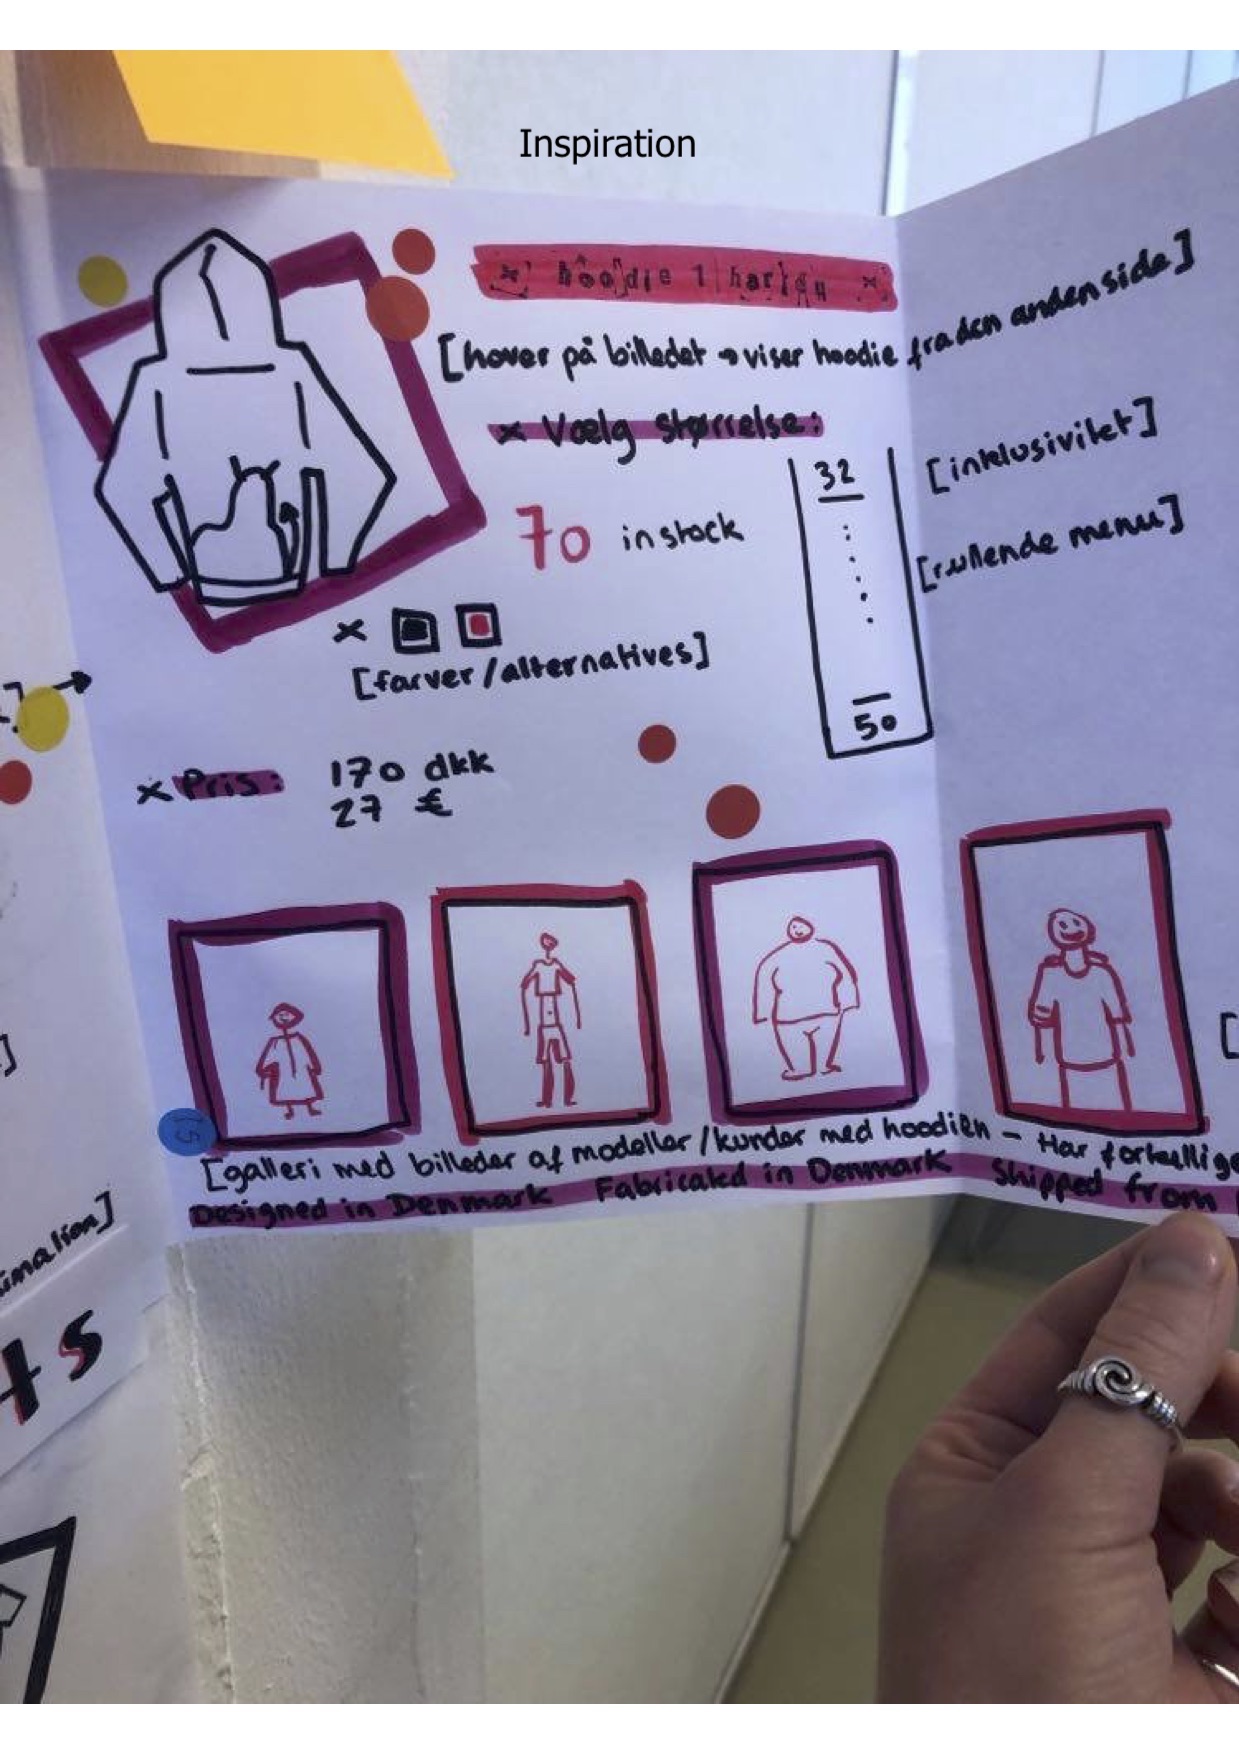 Inspiration
x hoodie 1 x
[hover på billedet → viser hoodie fra den anden side]
x Vælg størrelse:
32
[inklusivitet]
70 in stock
[rullende menu]
x
[farver/alternatives]
50
x Pris: 170 dkk
27 €
15
[galleri med billeder af modeller/kunder med hoodien - Har
Designed in Denmark Fabricated in Denmark Shipped from